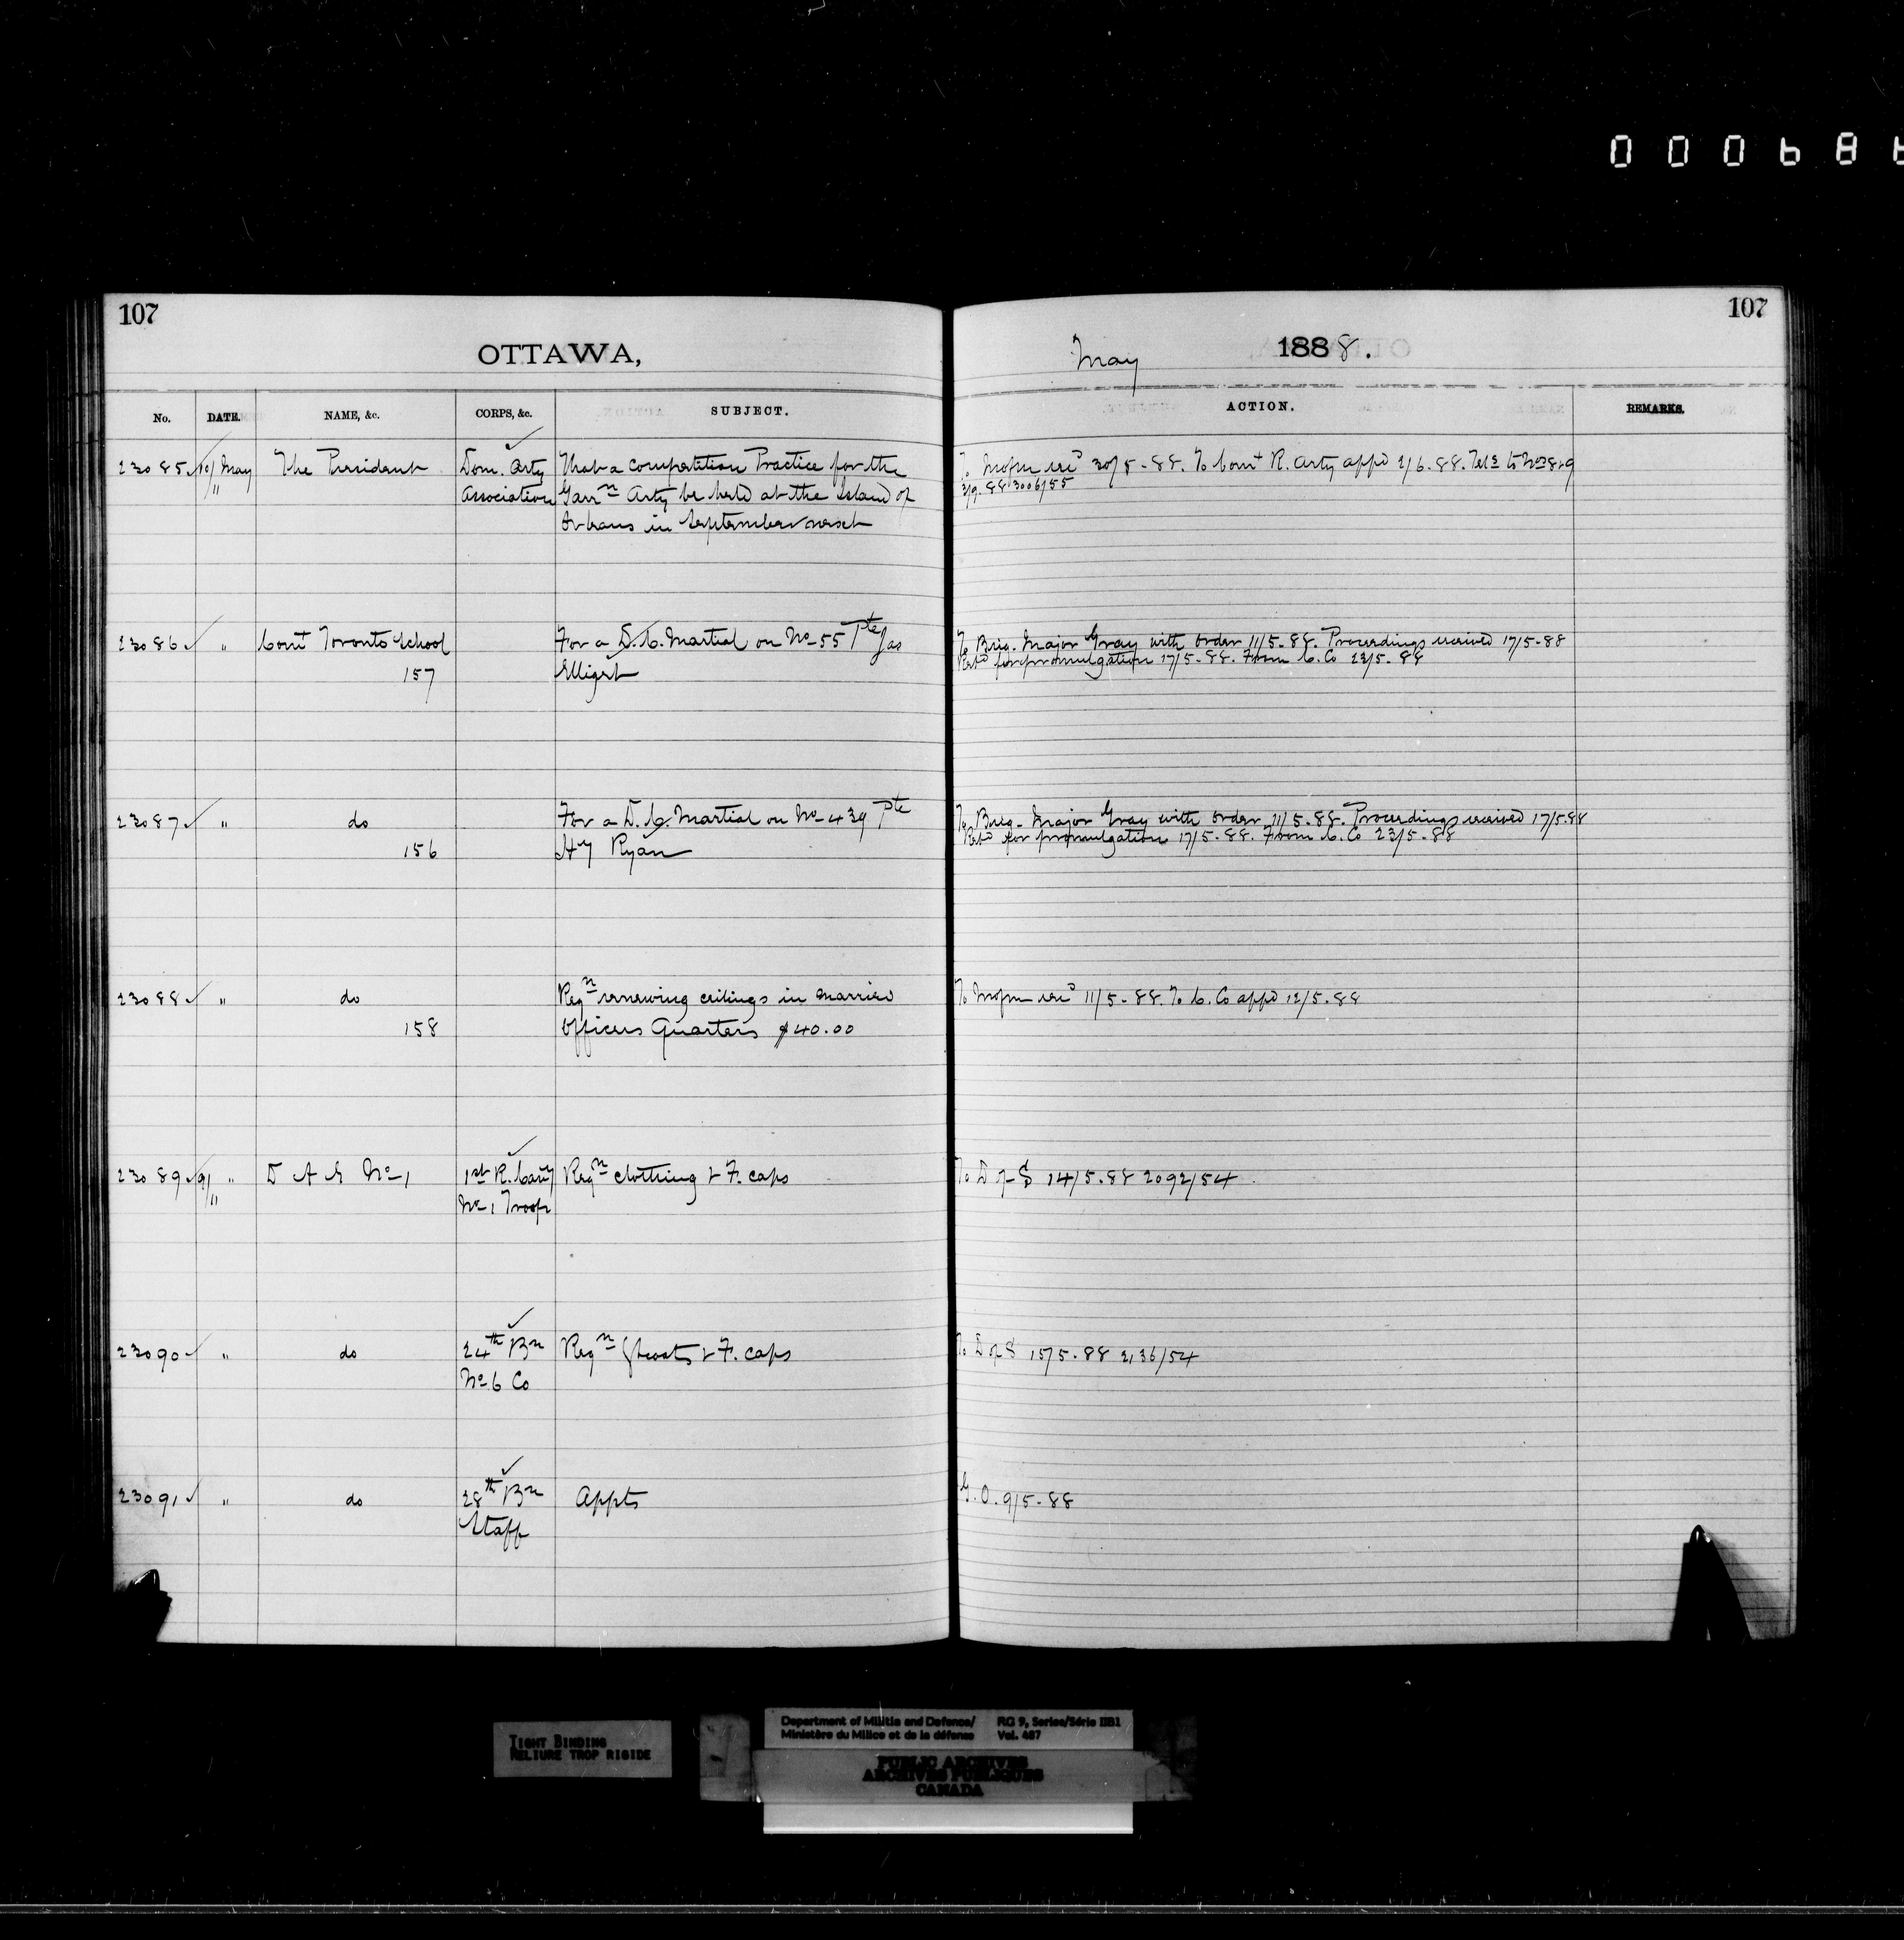 000686
107
107
OTTAWA,
May 1888.
No. DATE. NAME, &c. CORPS, &c. SUBJECT. ACTION. REMARKS.
23085 10/ May The President Dom. Arty That a competition Practice for the To Mofm recd 30/5-88. To Comt R. Arty appd 2/6.88. Tels to Nos 8&9
" Association Garrn Arty be held at the Island of 3/9.88 3006/55
Orleans in September next
23086 " Comt Toronto School For a D.C. Martial on No 55 Pte Jas To Brig. Major Gray with order 11/5-88. Proceedings received 17/5-88
157 Elligett Retd for promulgation 17/5-88. From C. Co 23/5-88
23087 " do For a D.C. Martial on No 439 Pte To Brig. Major Gray with order 11/5-88. Proceedings received 17/5.88
156 Hy Ryan Retd for promulgation 17/5-88. From C. Co 23/5-88
23088 " do Reqn renewing ceilings in married To Mofm recd 11/5-88. To C. Co appd 12/5-88
158 Officers Quarters $40.00
23089 9/ " D A G No 1 1st R. Cavy Reqn clothing & F. caps To D of S 14/5.88 2092/54
" No 1 Troop
23090 " do 24th Bn Reqn Gtcoats & F. caps To D of S 15/5-88 2136/54
No 6 Co
23091 " do 28th Bn Appts G.O. 9/5-88
Staff
TIGHT BINDING
RELIURE TROP RIGIDE
Department of Militia and Defence/ RG 9, Series/Série IIB1
Ministère du Milice et de la défense Vol. 487
PUBLIC ARCHIVES
ARCHIVES PUBLIQUES
CANADA